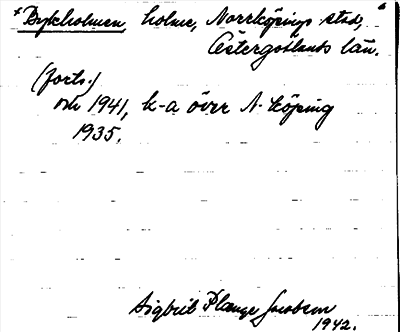 * Dykholmen, holme, Norrköpings stad,
Östergötlands län.
(forts.)
om 1941, k-a över N-köping
1935.
Sigbrit Plænge Jacobson
1942.